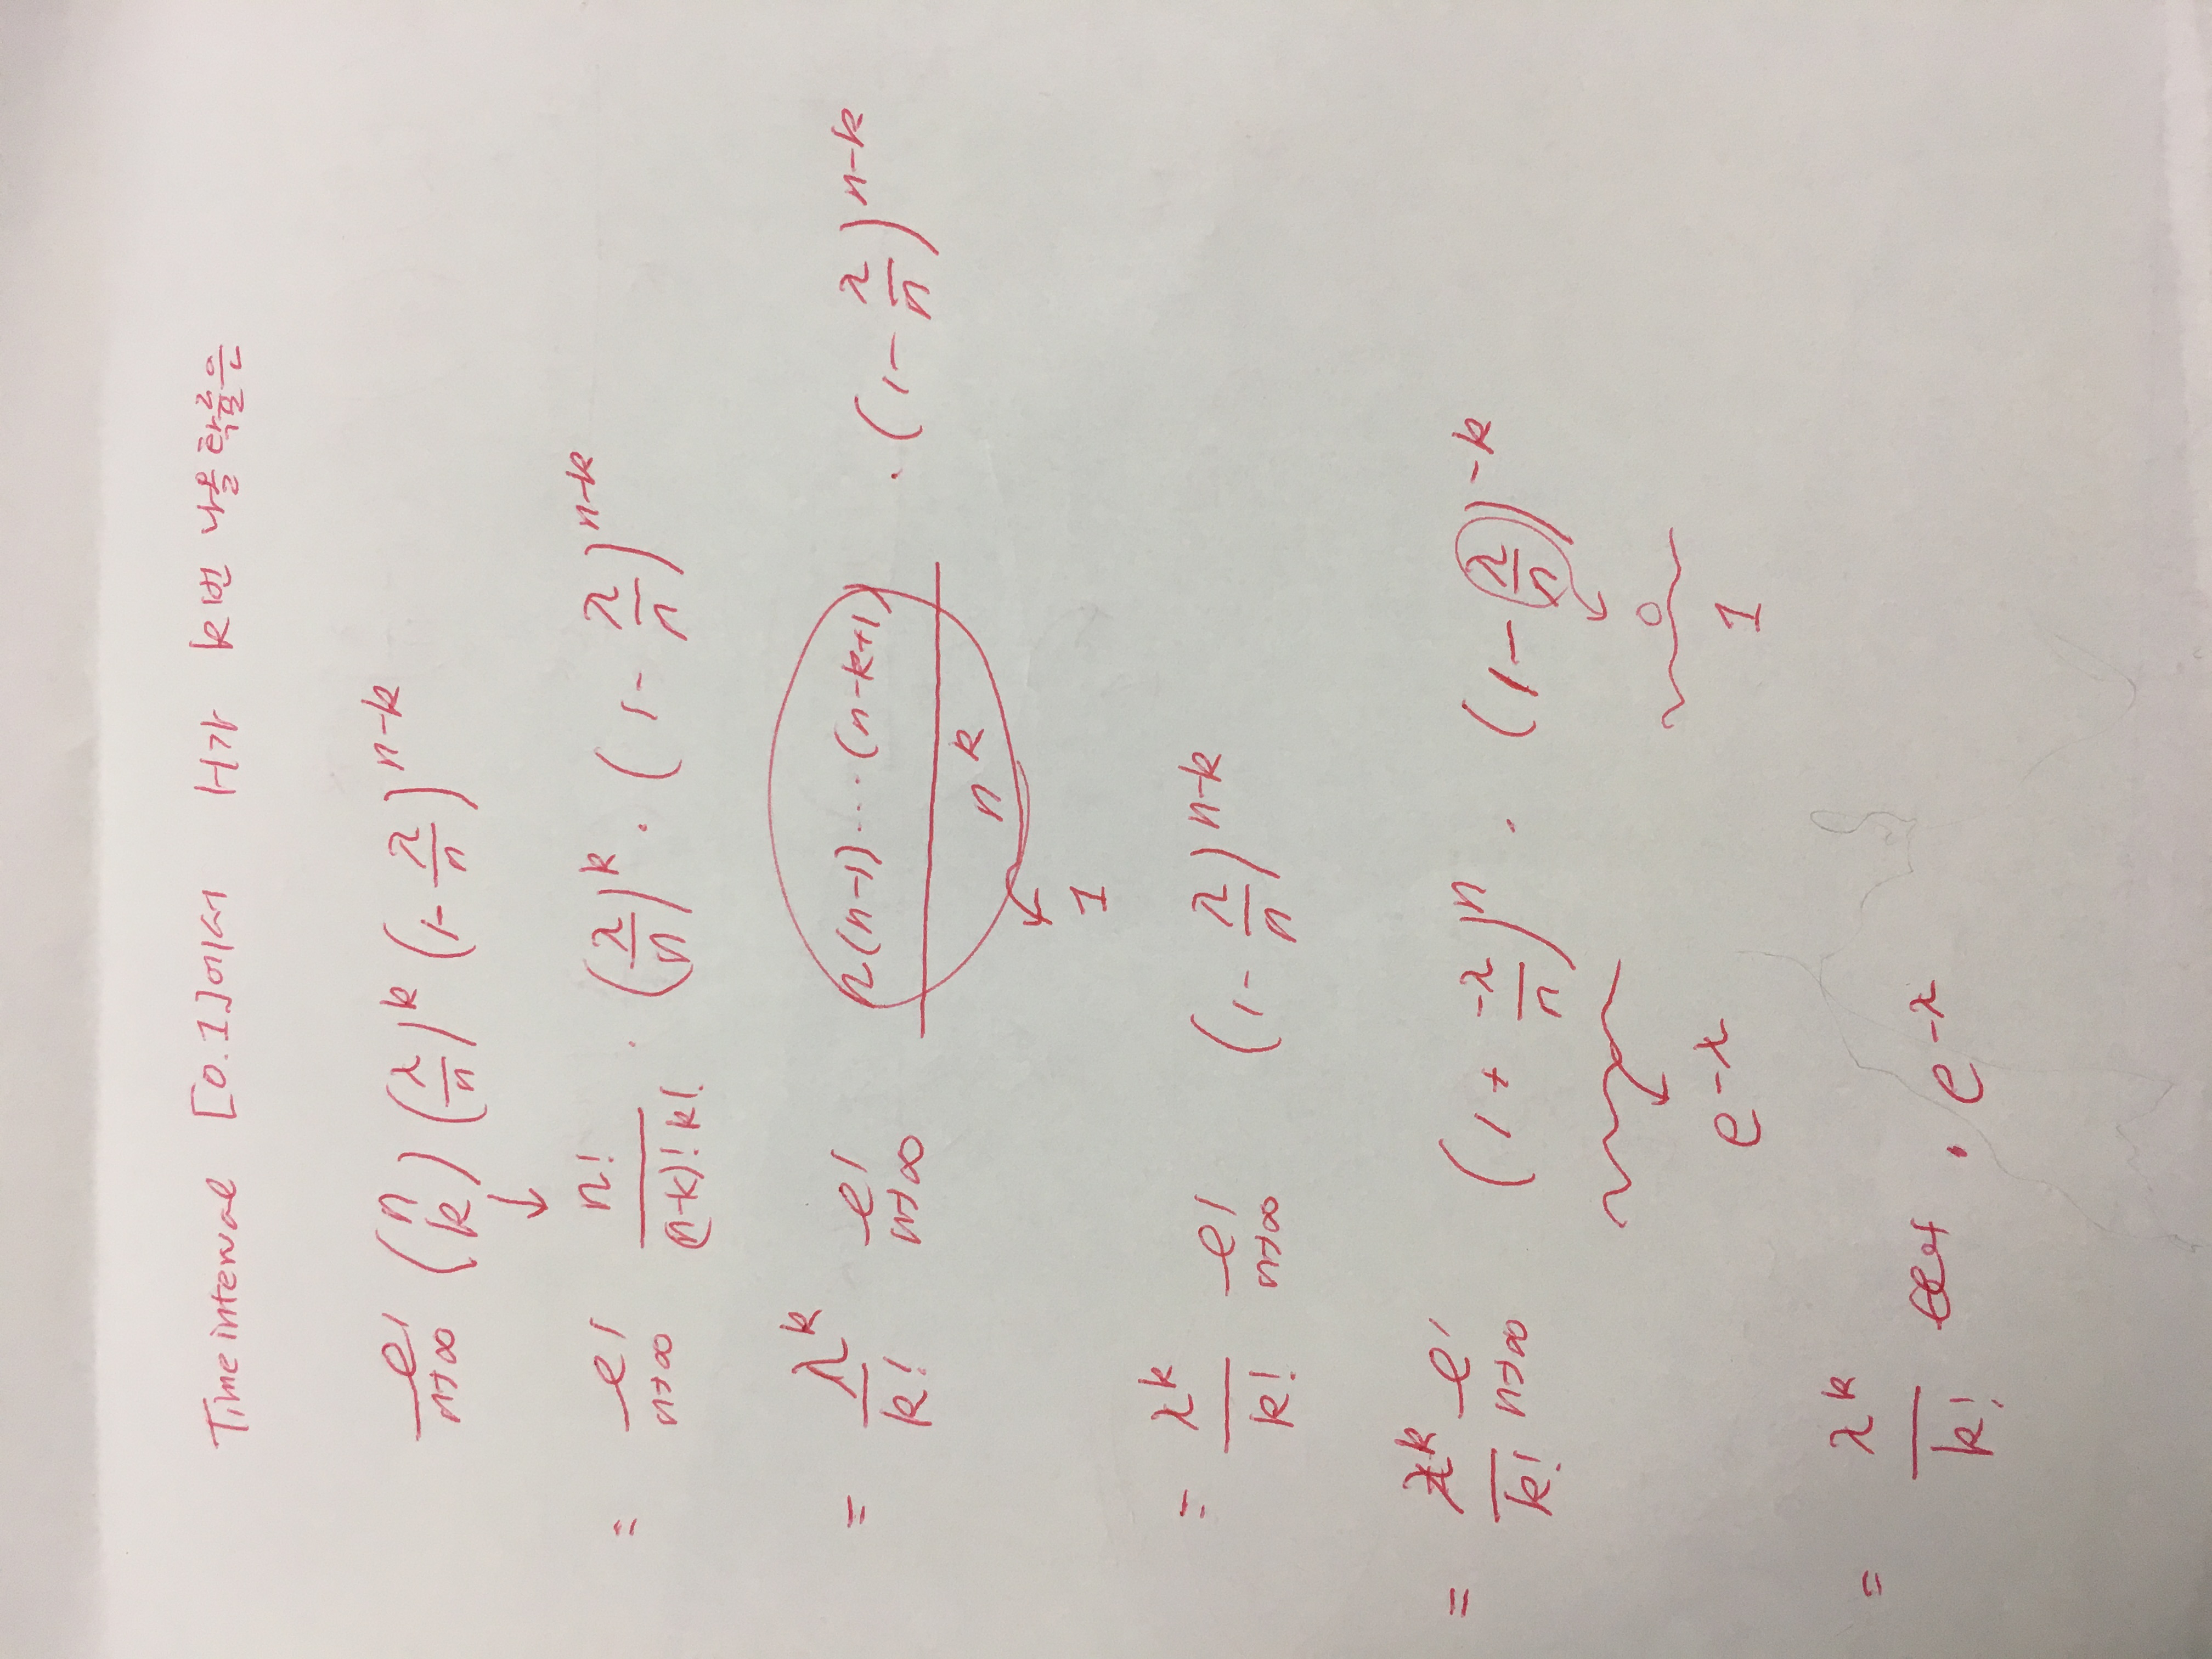 Time interval [0.1]에서 H가 k번 나올 확률은
lim n→∞ (n k) (λ/n)^k (1 - λ/n)^n-k
↓
= lim n→∞ n!/(n-k)! k! · (λ/n)^k · (1 - λ/n)^n-k
= λ^k/k! lim n→∞ n(n-1)···(n-k+1)/n^k · (1 - λ/n)^n-k
1
= λ^k/k! lim n→∞ (1 - λ/n)^n-k
= λ^k/k! lim n→∞ (1 + -λ/n)^n · (1 - λ/n)^-k
0
e^-λ 1
= λ^k/k! · e^-λ